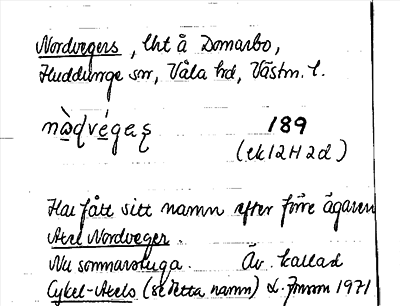 Nordvegers, lht å Domarbo,
Huddunge sn, Våla hd, Västm. l.
nò̱ḍvé̱gaṣ 189
(ek 12H2d)
Har fått sitt namn efter förre ägaren
Axel Nordveger.
Nu sommarstuga. Äv. kallad
Cykel-Axels (se detta namn) L. Jonsson 1971